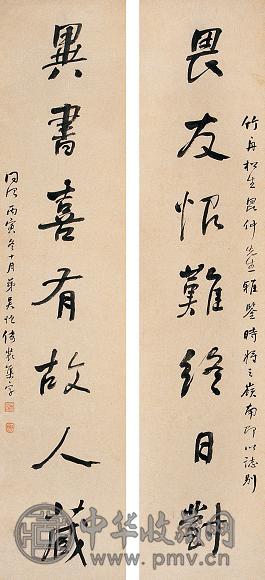 竹舟松生昆仲先生雅鑒時將之嶺南即以誌別
畏友恨難終日對
異書喜有故人藏
同治丙寅冬十月弟吳恒倚裝集字
中华收藏网
www.pmv.cn